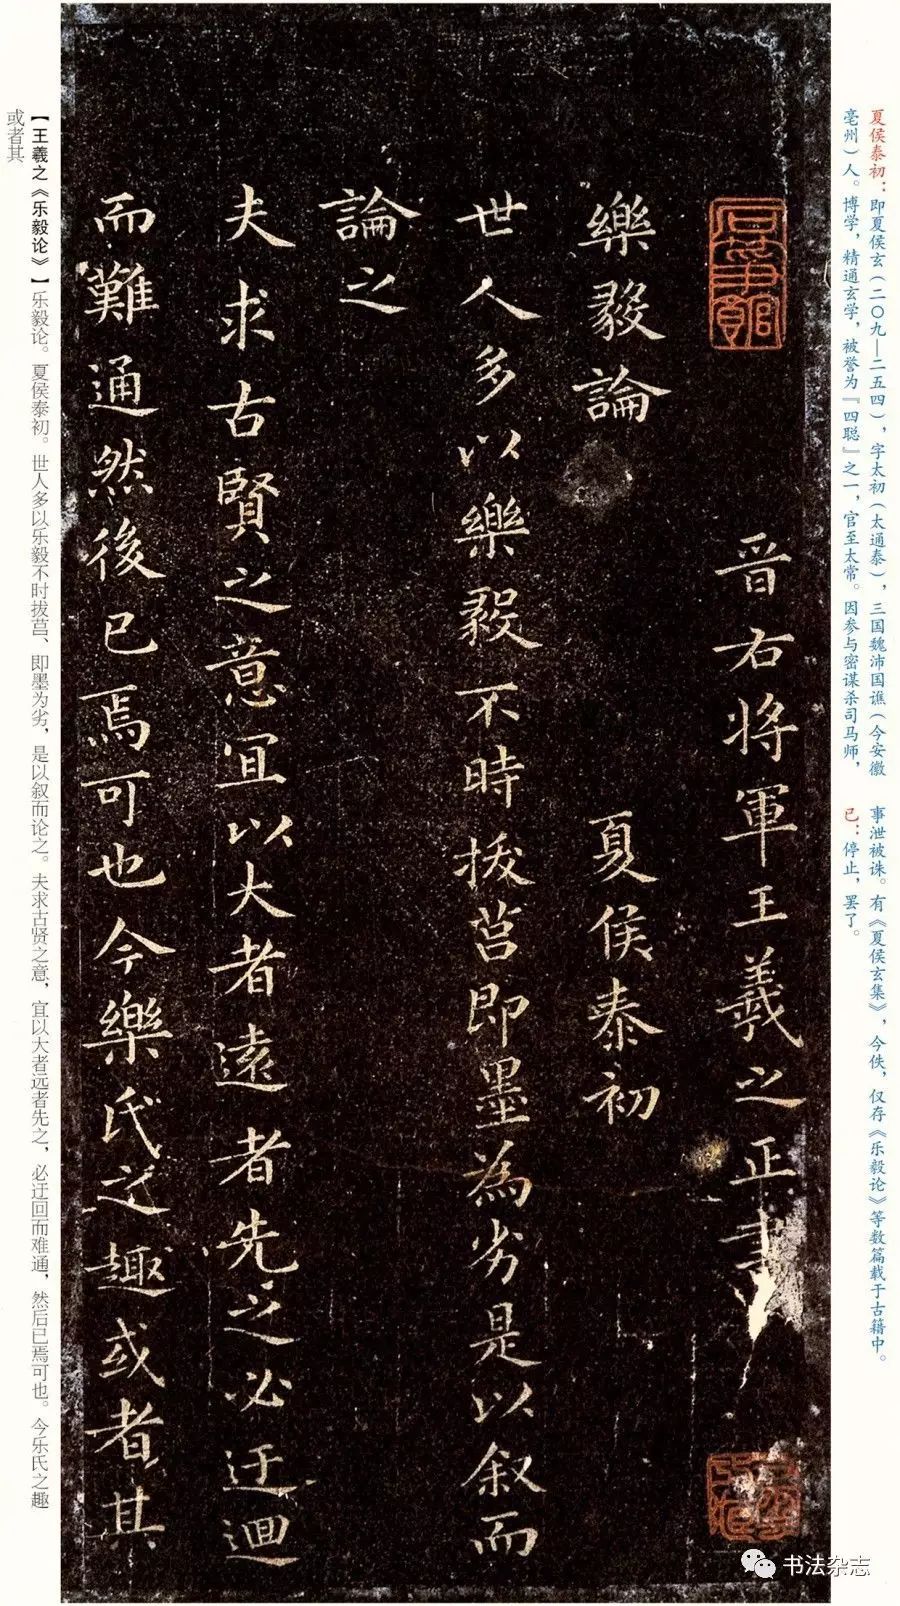 夏侯泰初：即夏侯玄（二〇九—二五四），字太初（太通泰），三国魏沛国谯（今安徽
亳州）人。博学，精通玄学，被誉为『四聪』之一，官至太常。因参与密谋杀司马师，
事泄被诛。有《夏侯玄集》，今佚，仅存《乐毅论》等数篇载于古籍中。
已：停止，罢了。
晋右将軍王羲之正書
樂毅論
夏侯泰初
世人多以樂毅不時拔莒即墨為劣是以叙而
論之
夫求古賢之意宜以大者遠者先之必迂迴
而難通然後已焉可也今樂氏之趣或者其
【王羲之《乐毅论》】乐毅论。夏侯泰初。世人多以乐毅不时拔莒、即墨为劣，是以叙而论之。夫求古贤之意，宜以大者远者先之，必迂回而难通，然后已焉可也。今乐氏之趣
或者其
书法杂志